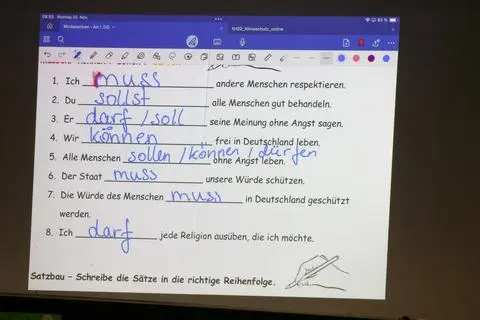 08:53 Montag 25. Nov.
83 %
Modalverben - Art.1 GG
tbf22_Klimaschutz_online
1. Ich muss andere Menschen respektieren.
2. Du sollst alle Menschen gut behandeln.
3. Er darf / soll seine Meinung ohne Angst sagen.
4. Wir können frei in Deutschland leben.
5. Alle Menschen sollen / können / dürfen ohne Angst leben.
6. Der Staat muss unsere Würde schützen.
7. Die Würde des Menschen muss in Deutschland geschützt
werden.
8. Ich darf jede Religion ausüben, die ich möchte.
Satzbau – Schreibe die Sätze in die richtige Reihenfolge.